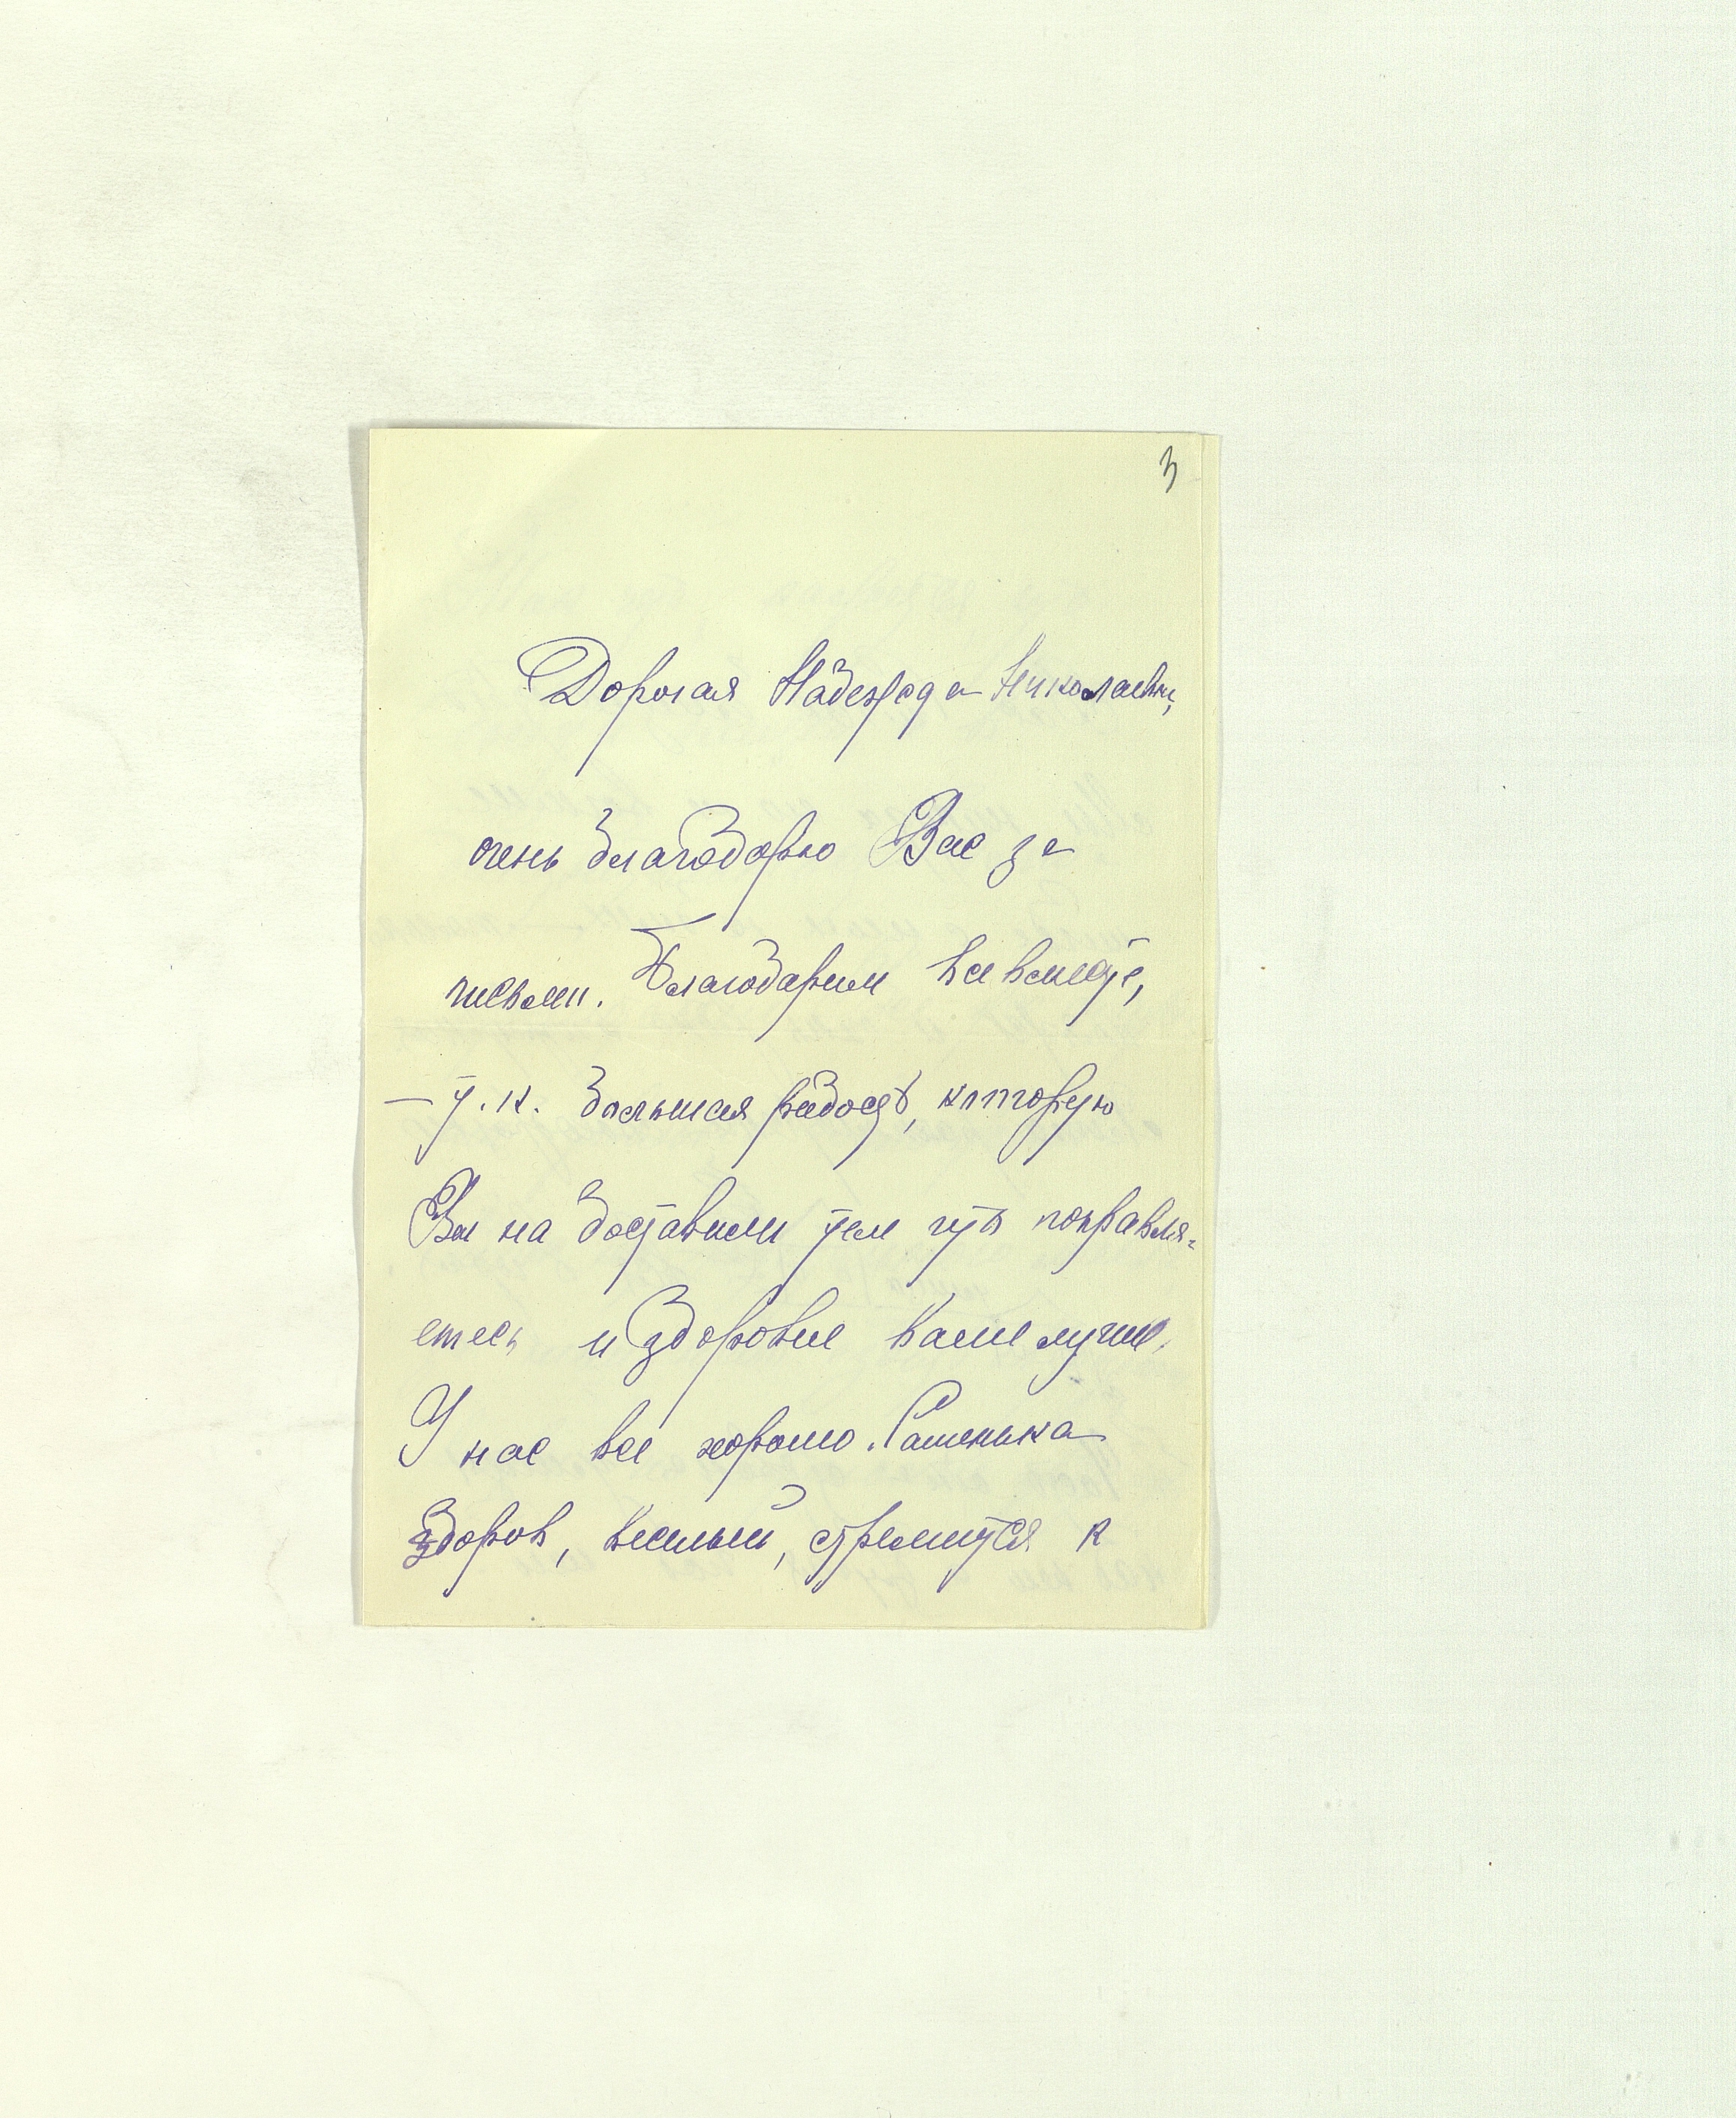 3
Дорогая Надежда Николаевна,
очень благодарю Вас за
письмо. Благодарим все вместе,
— т.к. большая радость, которую
Вы на доставили тем что поправля-
етесь и здоровье Ваше лучше.
У нас все хорошо. Сашенька
здоров, веселый, стремится к